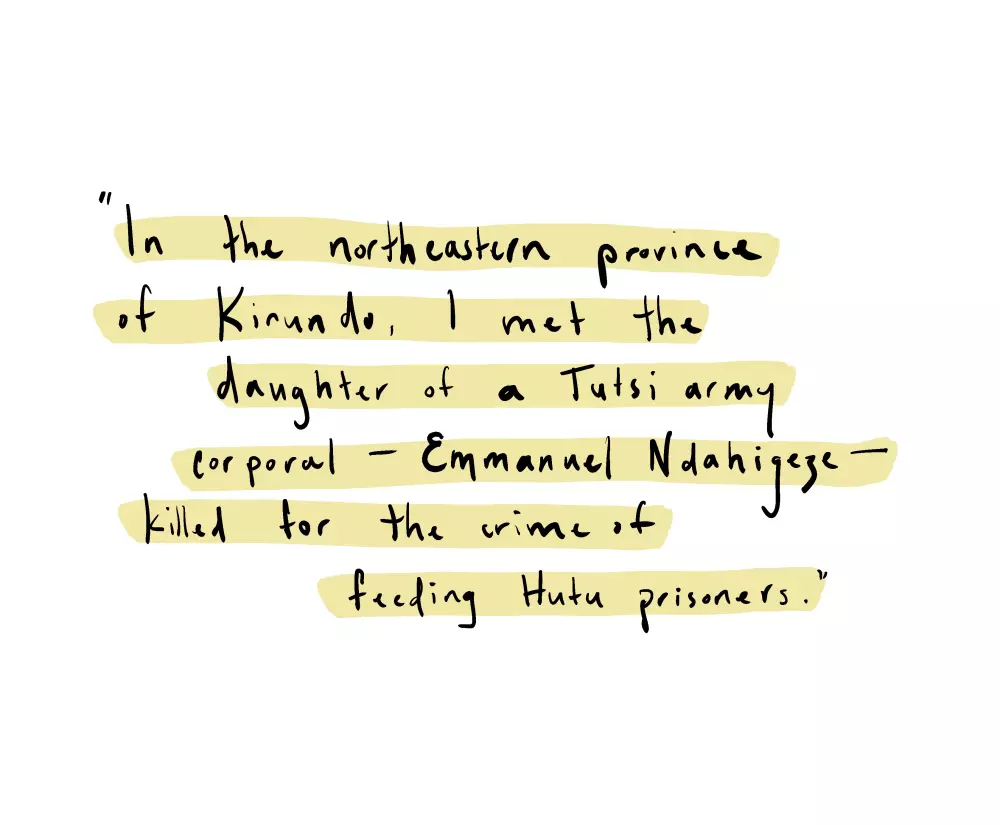 "In the northeastern province
of Kirundo, I met the
daughter of a Tutsi army
corporal – Emmanuel Ndahigeze –
killed for the crime of
feeding Hutu prisoners."